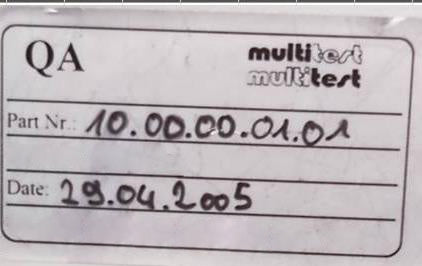 QA
multitest
multitest
Part Nr.: 10.00.00.01.01
Date: 29.04.2005